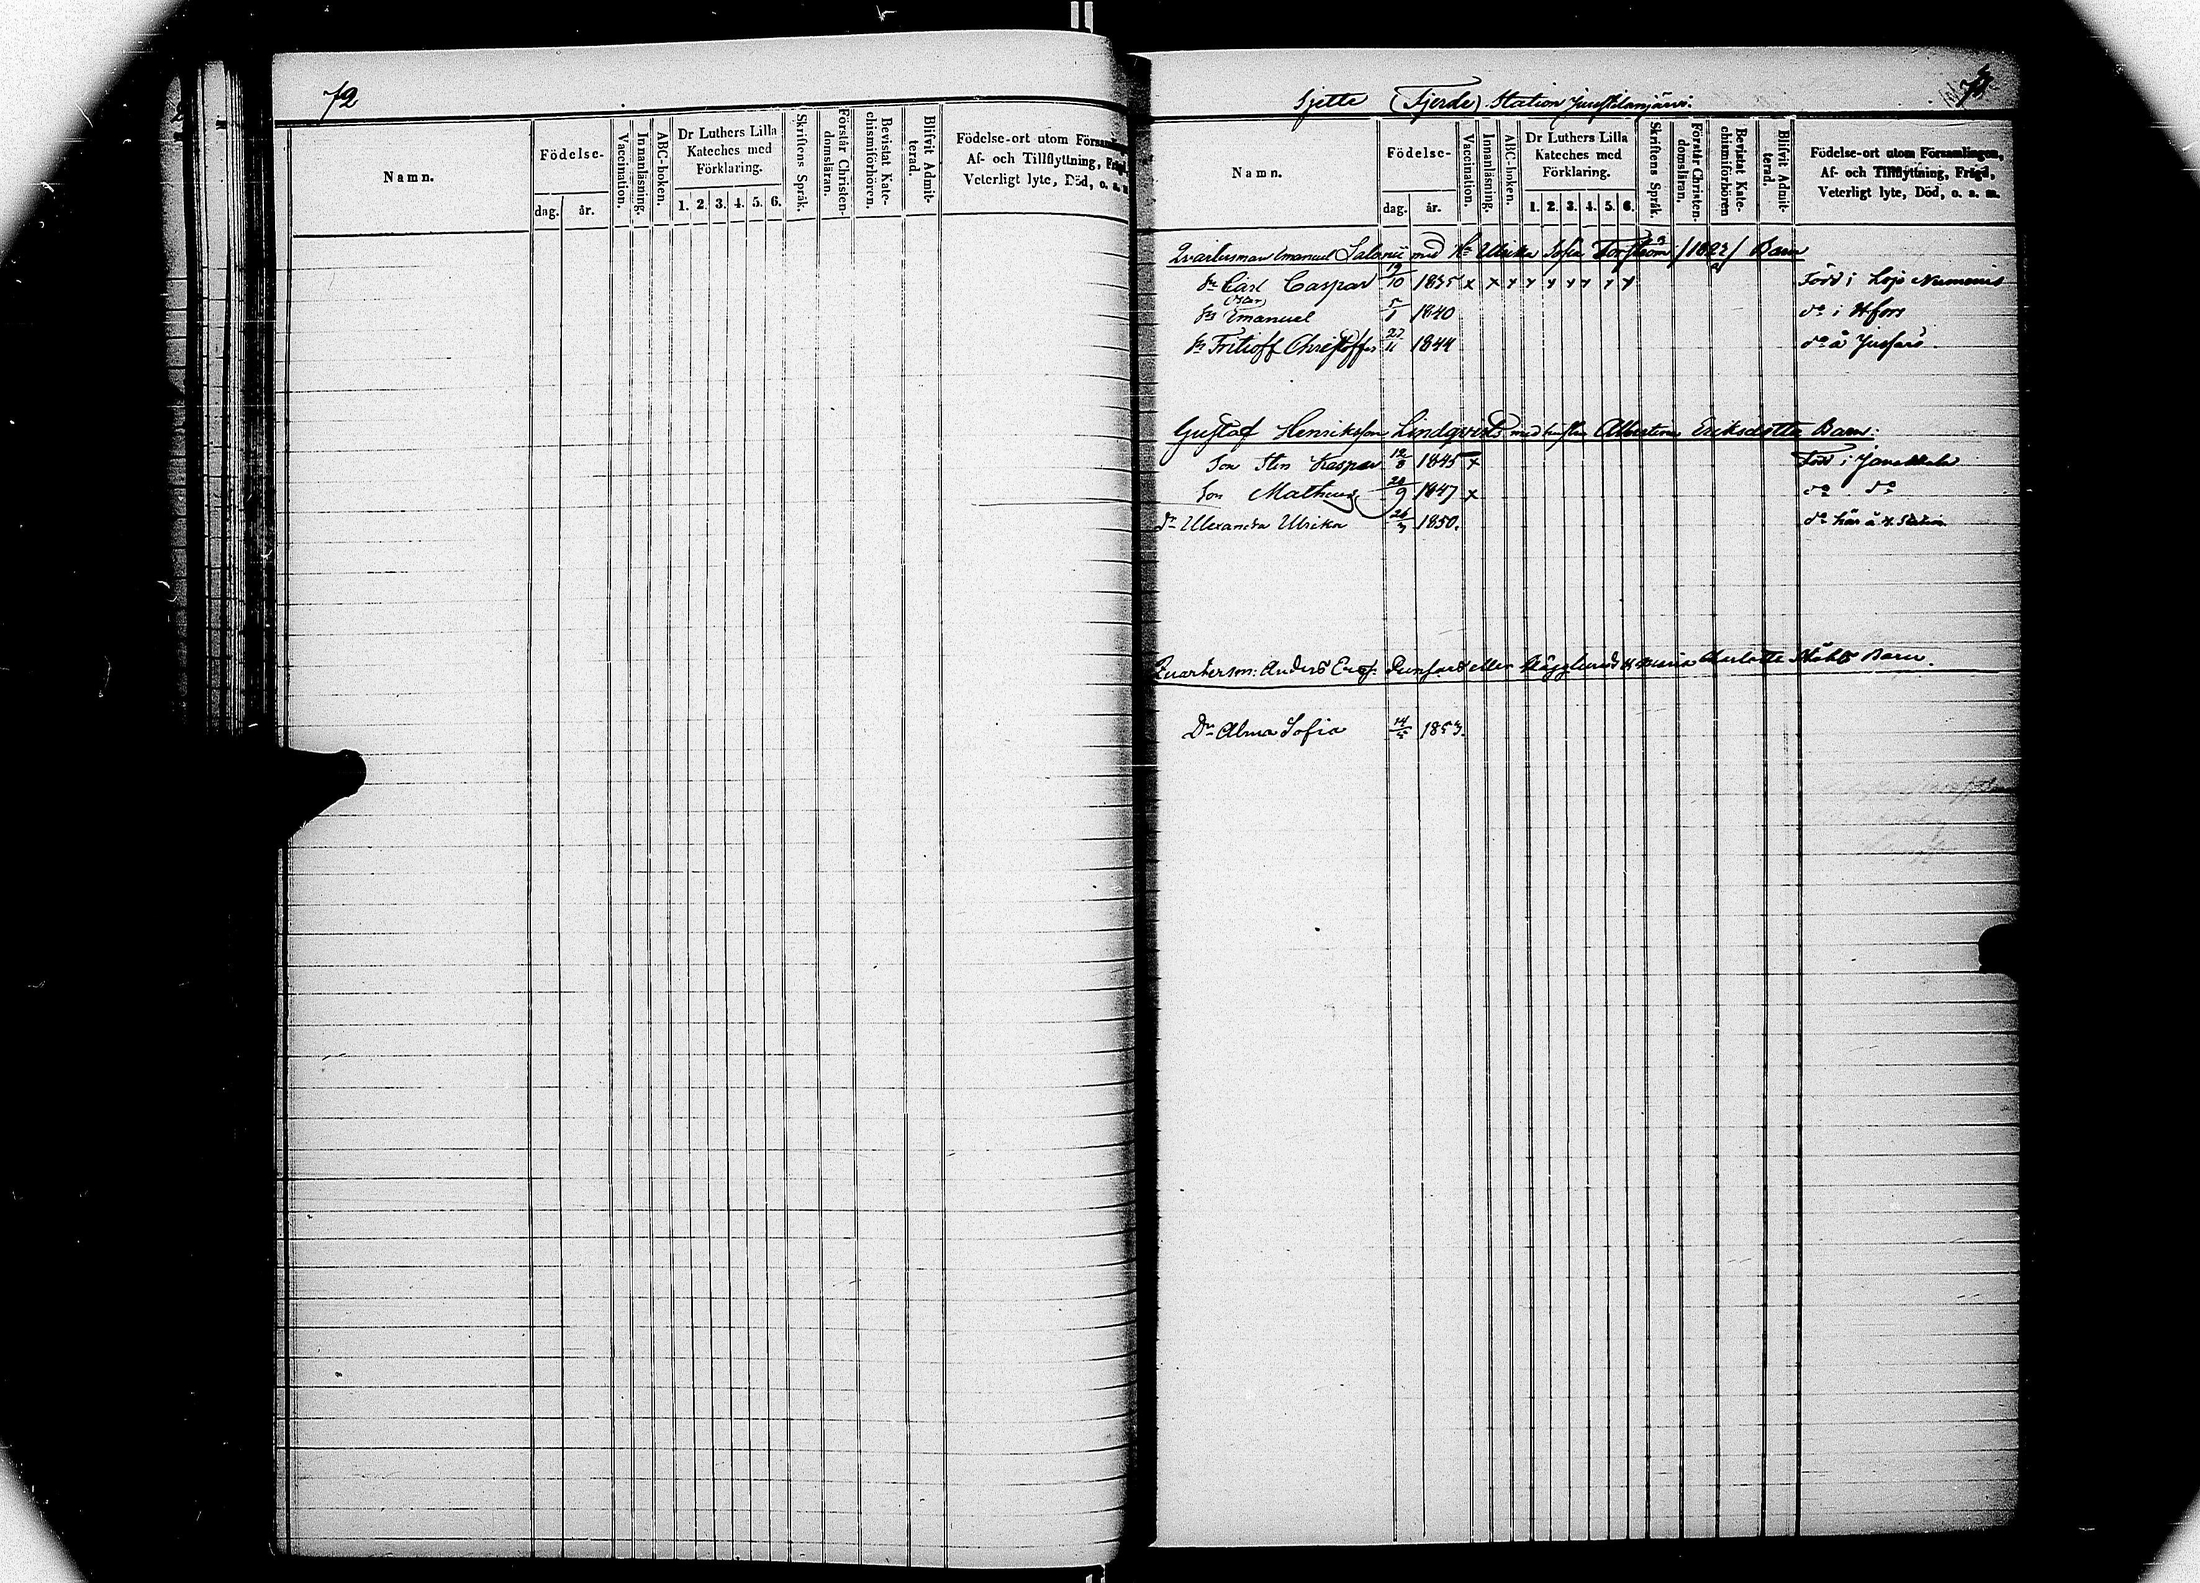 72
Namn.
Födelse-
dag. år.
Vaccination.
Innanläsning.
ABC-boken.
Dr Luthers Lilla
Kateches med
Förklaring.
1. 2. 3. 4. 5. 6.
Skriftens Språk.
Förstår Christen-
domsläran.
Bevistat Kate-
chismiförhören.
Blifvit Admit-
terad.
Födelse-ort utom
Af- och Tillflyttning,
Veterligt lyte, Död, o. a. m.
Sjette (Fjerde) Station
Namn.
Födelse-
dag. år.
Vaccination.
Innanläsning.
ABC-boken.
Dr Luthers Lilla
Kateches med
Förklaring.
1. 2. 3. 4. 5. 6.
Skriftens Språk.
Förstår Christen-
domsläran.
Bevistat Kate-
chismiförhören
Blifvit Admit-
terad.
Födelse-ort utom Församlingen,
Af- och Tillflyttning, Fräjd,
Veterligt lyte, Död, o. a. m.
Emanuel med Ulrika Sofia Barn
Carl Caspar 19/10 1835 x x x x x x x x x Född i Lojo Nummis
Emanuel 1840 do i Hfors
Fritioff Christoffer 1844 do å Jussarö
Gustaf Henriksson Lindqvists med hustru Albertina Eriksdotter Barn:
Son Sten Kaspar 12/8 1845 x Född i Janakkala
Son Matheus 1847 x do do
Dr Alexandra Ulrika 26/3 1850. do här å Station
Anders eller Hägglunds Charlotte Barn.
Dr Alma Sofia 14/5 1853.